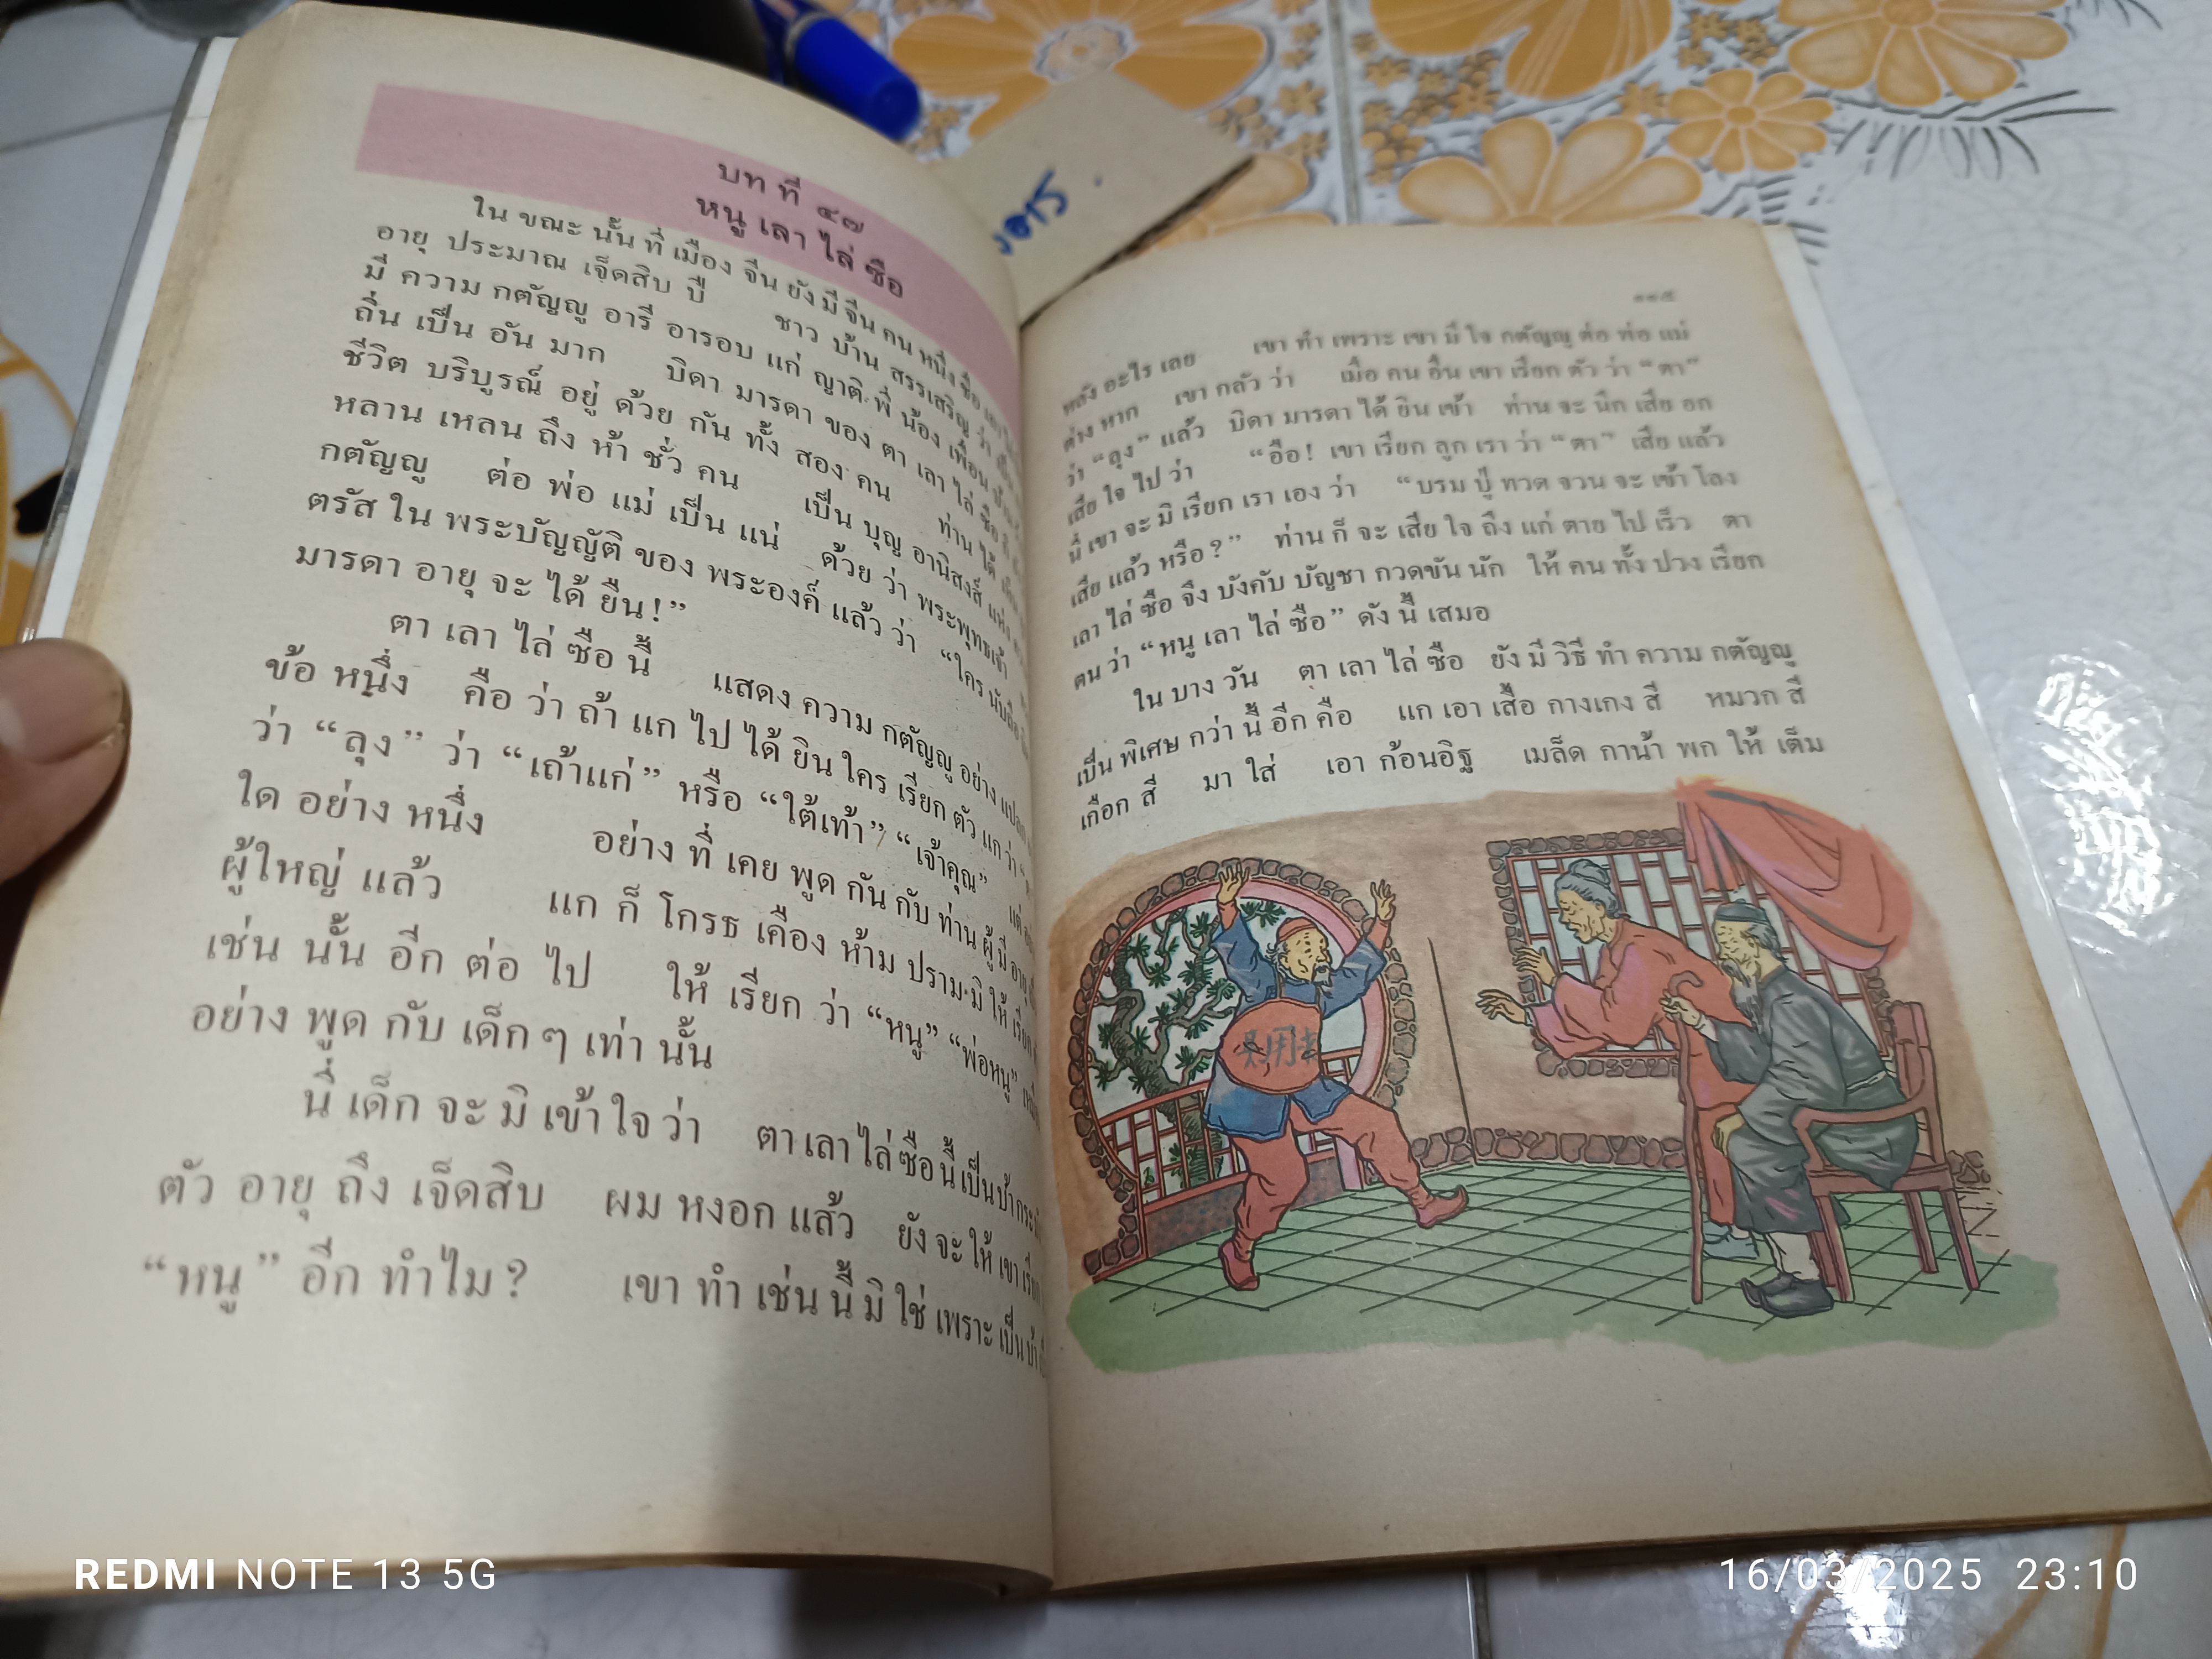 บท ที่ ๔๗
หนู เลา ไล่ ซือ
ใน ขณะ นั้น ที่ เมือง จีน ยัง มี จีน คน หนึ่ง ชื่อ
อายุ ประมาณ เจ็ดสิบ ปี ชาว บ้าน สรรเสริญ ว่า
มี ความ กตัญญู อารี อารอบ แก่ ญาติ พี่ น้อง เพื่อน บ้าน
ถิ่น เป็น อัน มาก บิดา มารดา ของ ตา เลา ไล่ ซือ
ชีวิต บริบูรณ์ อยู่ ด้วย กัน ทั้ง สอง คน ท่าน ได้
หลาน เหลน ถึง ห้า ชั่ว คน เป็น บุญ อานิสงส์ แห่ง
กตัญญู ต่อ พ่อ แม่ เป็น แน่ ด้วย ว่า พระพุทธเจ้า
ตรัส ใน พระบัญญัติ ของ พระองค์ แล้ว ว่า “ใคร นับถือ
มารดา อายุ จะ ได้ ยืน!”
ตา เลา ไล่ ซือ นี้ แสดง ความ กตัญญู อย่าง
ข้อ หนึ่ง คือ ว่า ถ้า แก ไป ได้ ยิน ใคร เรียก ตัว แก ว่า
ว่า “ลุง” ว่า “เถ้าแก่” หรือ “ใต้เท้า” “เจ้าคุณ”
ใด อย่าง หนึ่ง อย่าง ที่ เคย พูด กัน กับ ท่าน ผู้ มี อายุ
ผู้ใหญ่ แล้ว แก ก็ โกรธ เคือง ห้าม ปราม มิ ให้ เรียก
เช่น นั้น อีก ต่อ ไป ให้ เรียก ว่า “หนู” “พ่อหนู”
อย่าง พูด กับ เด็ก ๆ เท่า นั้น
นี่ เด็ก จะ มิ เข้า ใจ ว่า ตา เลา ไล่ ซือ นี้ เป็น บ้า
ตัว อายุ ถึง เจ็ดสิบ ผม หงอก แล้ว ยัง จะ ให้ เขา เรียก
“หนู” อีก ทำไม? เขา ทำ เช่น นี้ มิ ใช่ เพราะ เป็น บ้า
๑๑๕
หลัง อะไร เลย เขา ทำ เพราะ เขา มี ใจ กตัญญู ต่อ พ่อ แม่
ต่าง หาก เขา กลัว ว่า เมื่อ คน อื่น เขา เรียก ตัว ว่า “ตา”
ว่า “ลุง” แล้ว บิดา มารดา ได้ ยิน เข้า ท่าน จะ นึก เสีย อก
เสีย ใจ ไป ว่า “อือ! เขา เรียก ลูก เรา ว่า “ตา” เสีย แล้ว
นี่ เขา จะ มิ เรียก เรา เอง ว่า “บรม ปู่ ทวด จวน จะ เข้า โลง
เสีย แล้ว หรือ?” ท่าน ก็ จะ เสีย ใจ ถึง แก่ ตาย ไป เร็ว ตา
เลา ไล่ ซือ จึง บังคับ บัญชา กวดขัน นัก ให้ คน ทั้ง ปวง เรียก
ตน ว่า “หนู เลา ไล่ ซือ” ดัง นี้ เสมอ
ใน บาง วัน ตา เลา ไล่ ซือ ยัง มี วิธี ทำ ความ กตัญญู
เป็น พิเศษ กว่า นี้ อีก คือ แก เอา เสื้อ กางเกง สี หมวก สี
เกือก สี มา ใส่ เอา ก้อนอิฐ เมล็ด กาน้า พก ให้ เต็ม
REDMI NOTE 13 5G
16/03/2025 23:10